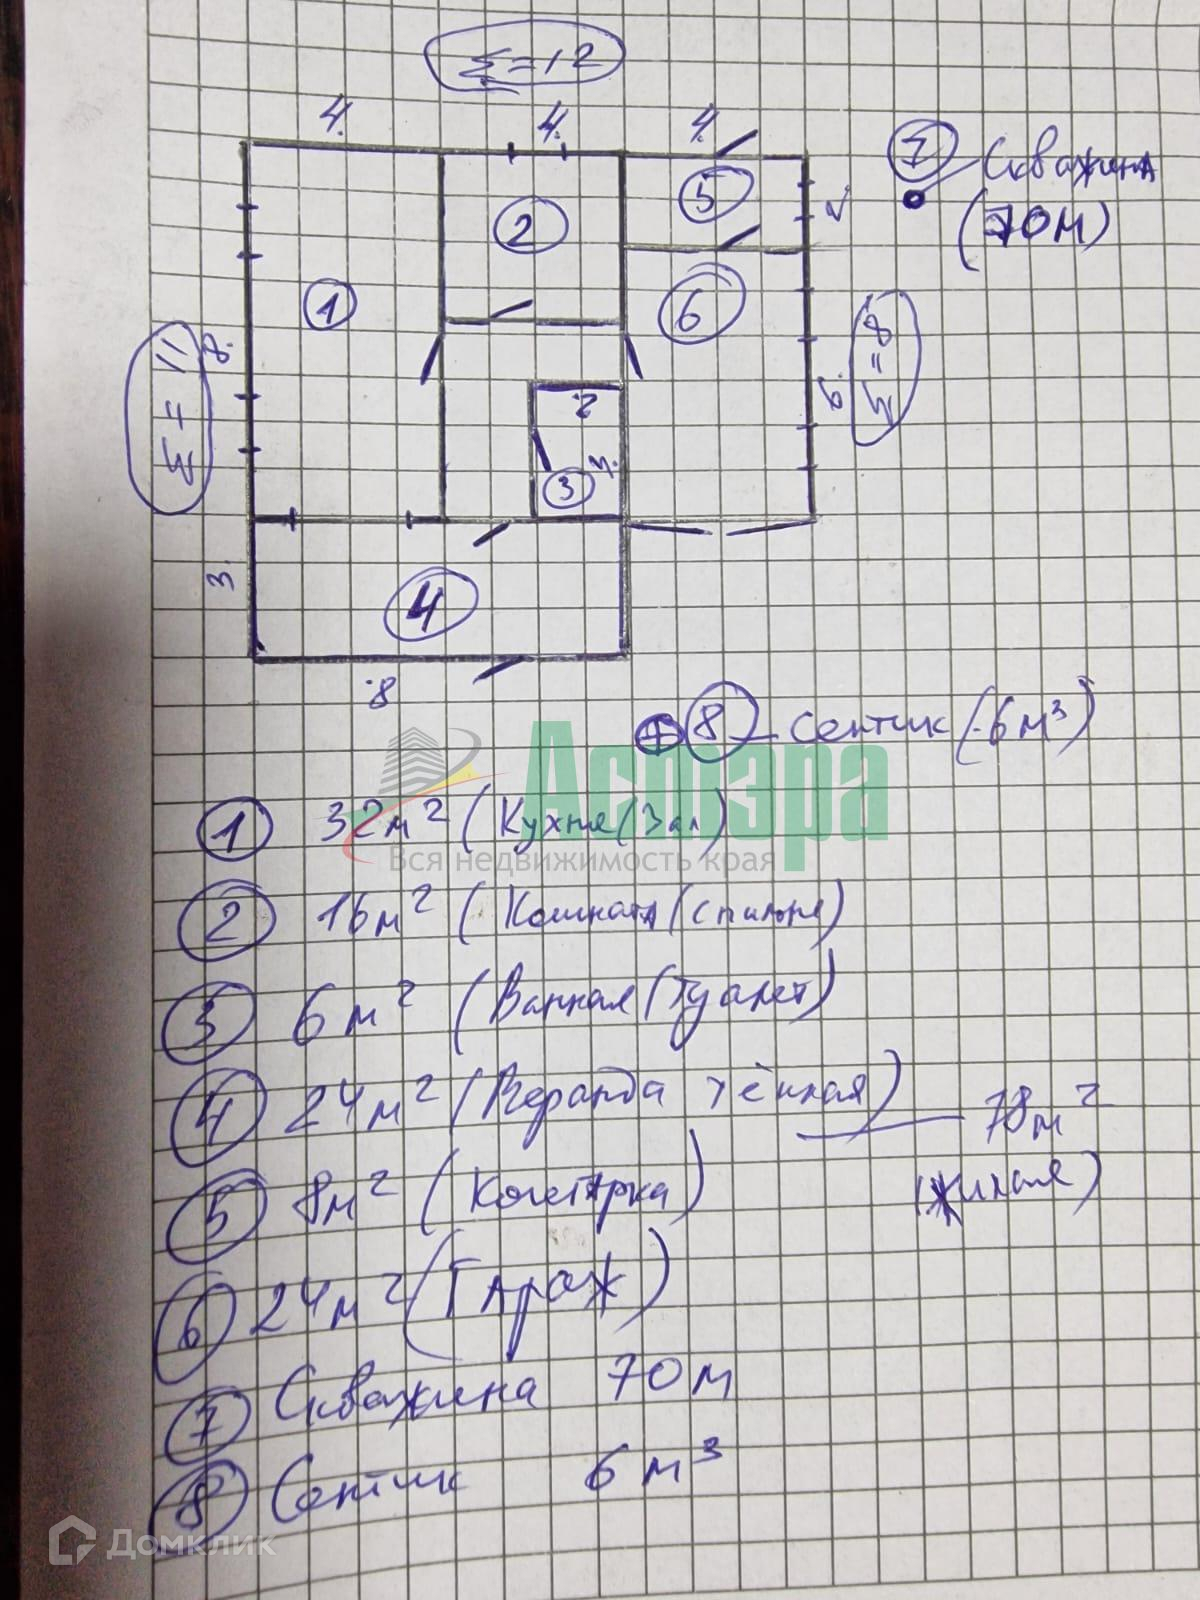 Σ=12
4. 4. 4.
1 2 5 6 3 4
7 Скважина
(70м)
Σ=11
8.
Σ=8
6.
2
3.
3.
8
8 - септик (6м³)
Астэра
Вся недвижимость края
1 32м² (Кухня/Зал)
2 16м² (Комната/спальня)
3 6м² (Ванная/Туалет)
4 24м² (Веранда тёплая) — 78м²
(жилая)
5 8м² (Кочегарка)
6 24м² (Гараж)
7 Скважина 70м
8 Септик 6м³
Домклик